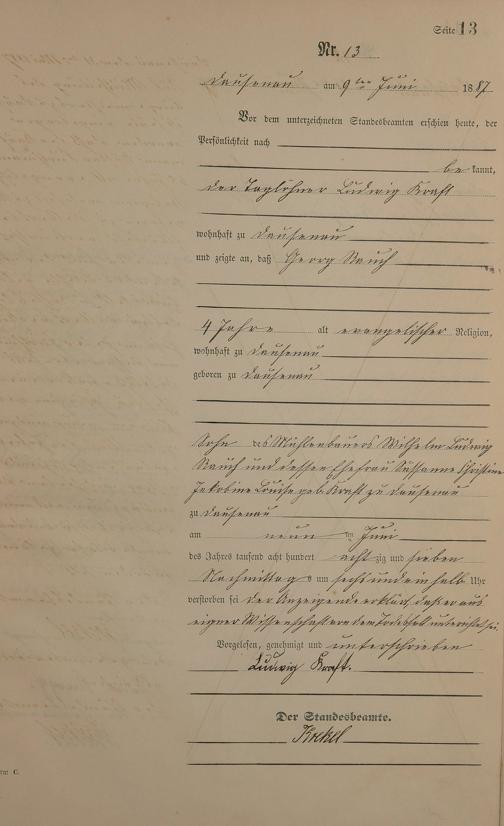 Seite 13
Nr. 13
Dausenau am 9ten Juni 1887
Vor dem unterzeichneten Standesbeamten erschien heute, der
Persönlichkeit nach
bekannt,
der Taglöhner Ludwig Kraft
wohnhaft zu Dausenau
und zeigte an, daß Georg Rauch
4 Jahre alt evangelischer Religion,
wohnhaft zu Dausenau
geboren zu Dausenau
Sohn des Mühlenbauers Wilhelm Ludwig
Rauch und dessen Ehefrau Susanne Christine
Jakobine Louise geb. Kraft zu Dausenau
zu Dausenau
am neun ten Juni
des Jahres tausend acht hundert achtzig und sieben
Nachmittags um sechs und ein halb Uhr
verstorben sei der Anzeigende erklärt, daß er aus
eigner Wissenschaft von dem Todesfall unterrichtet sei.
Vorgelesen, genehmigt und unterschrieben
Ludwig Kraft.
Der Standesbeamte.
C.